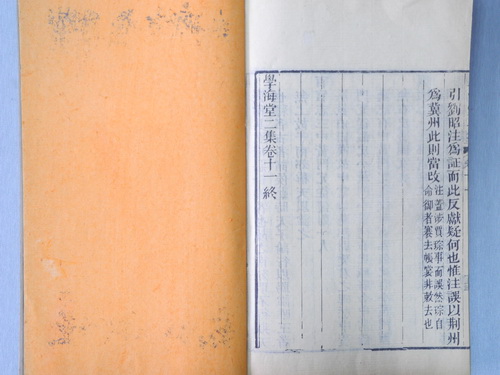 引劉昭注為証而此反獻疑何也惟注誤以荆州
為冀州此則當改注蓋涉賈琮事而誤然琮自
命御者褰去帷裳非敕去也
學海堂二集卷十一終